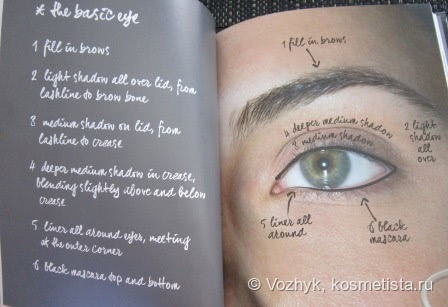 * the basic eye
1 fill in brows
2 light shadow all over lid, from
lashline to brow bone
3 medium shadow on lid, from
lashline to crease
4 deeper medium shadow in crease,
blending slightly above and below
crease
5 liner all around eyes, meeting
at the outer corner
6 black mascara top and bottom
1 fill in brows
4 deeper medium shadow
3 medium shadow
2 light
shadow
all
over
5 liner all
around
6 black
mascara
© Vozhyk, kosmetista.ru